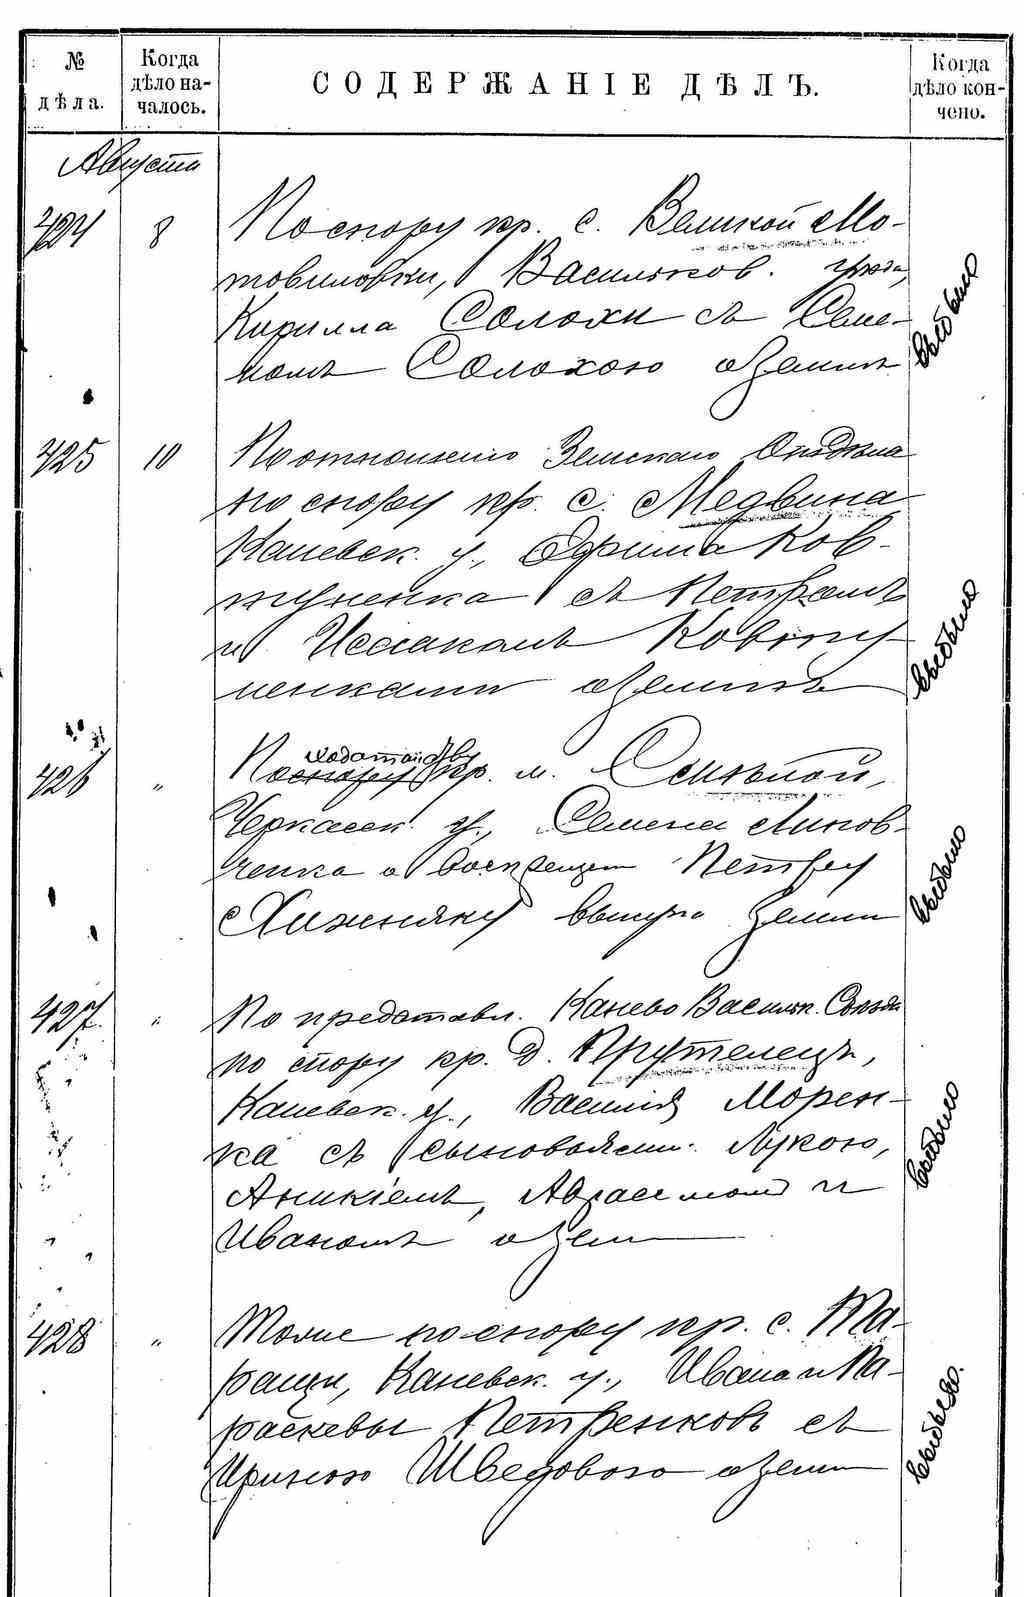 № дѣла.
Когда дѣло на-
чалось.
СОДЕРЖАНІЕ ДѢЛЪ.
Когда дѣло кон-
чено.
Августа
424 8 По спору кр. с. Великой Мо-
товиловки, Васильков. уѣзда,
Кирилла Солохи съ Семе-
номъ Солохою о землѣ
выбыло
425 10 По отношенію Земскаго Отдѣла
по спору кр. с. Медвина
Каневск. у., Ефима Ков-
туненка съ Петромъ
и Исаакомъ Ковту-
ненками о землѣ
выбыло
426 „ По спору ходатайству кр. м. Смѣлой,
Черкасск. у., Семена Линов-
ченка о воспрещ. Петру
Хижняку выкупа земли
выбыло
427. „ По представл. Канево Васильк. Съѣзда
по спору кр. д. Прутелецъ,
Каневск. у., Василія Морен-
ка съ сыновьями: Лукою,
Аникіемъ, Аврамомъ и
Иваномъ о зем
выбыло
428 „ Тоже по спору кр. с. Та-
ращи, Каневск. у., Ивана и Па-
раскевы Петренковъ съ
Ириною Шведовою о земл
выбыло.